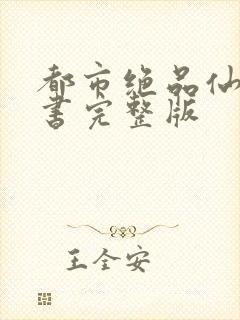 都市绝品仙
书完整版
王全安